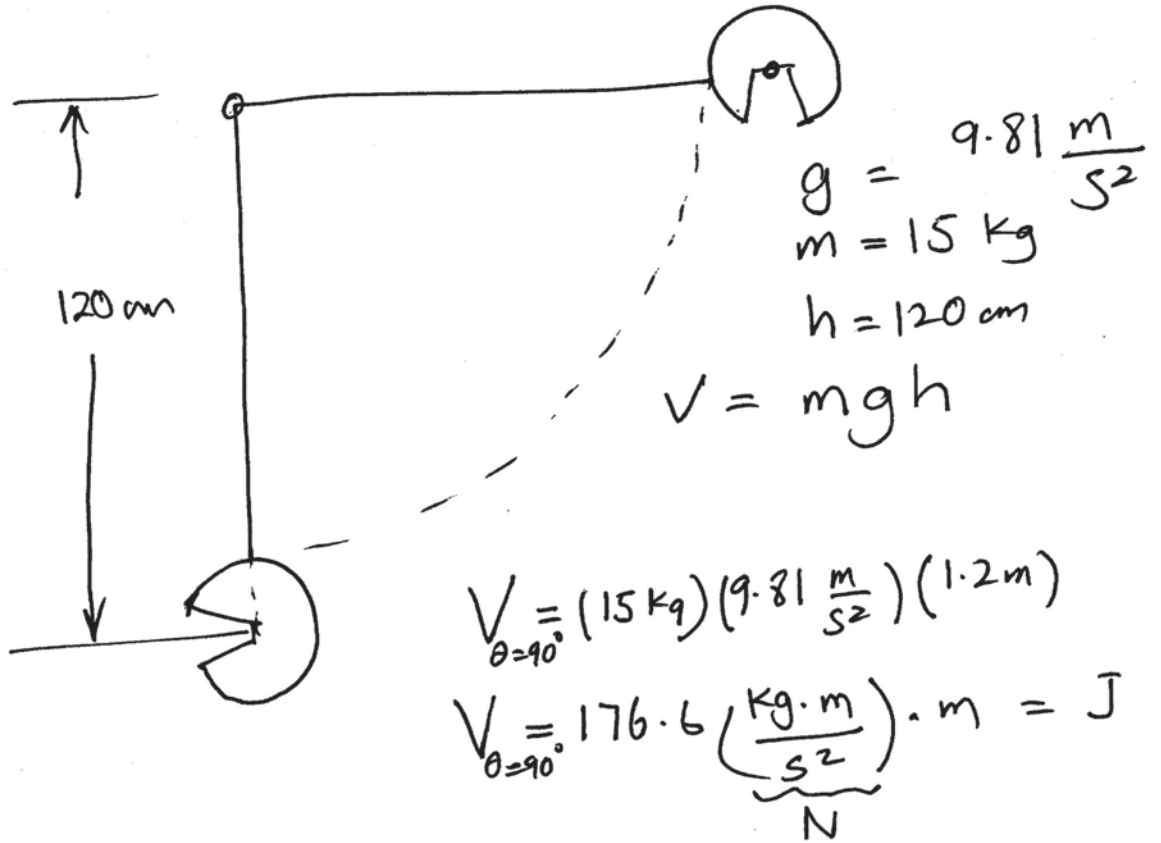 120 cm
g = 9.81 m/s²
m = 15 kg
h = 120 cm
V = mgh
V_θ=90° = (15 kg)(9.81 m/s²)(1.2m)
V_θ=90° = 176.6 (kg·m/s²)·m = J
N